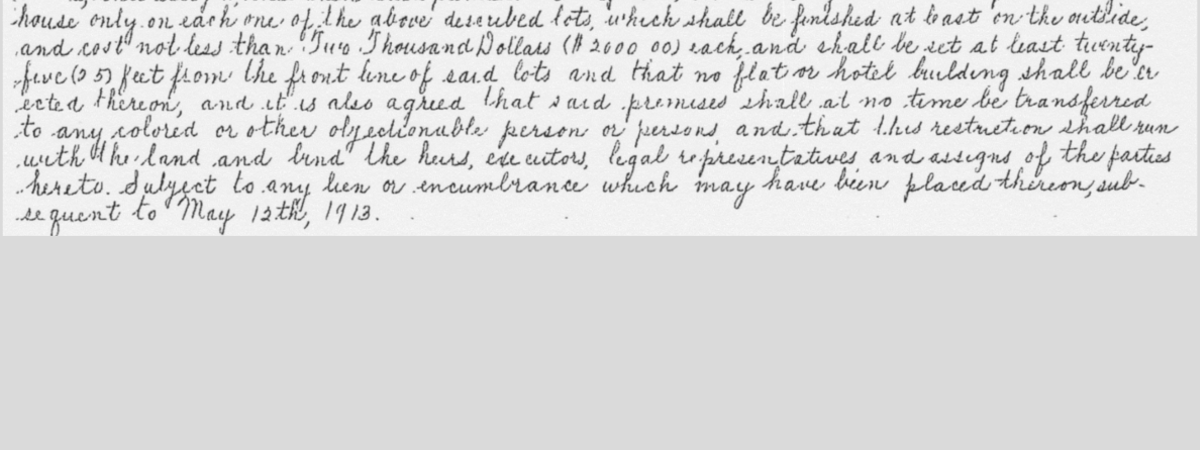 house only on each one of the above described lots, which shall be finished at least on the outside,
and cost not less than Two Thousand Dollars ($2000 00) each, and shall be set at least twenty-
five (25) feet from the front line of said lots and that no flat or hotel building shall be er
ected thereon, and it is also agreed that said premises shall at no time be transferred
to any colored or other objectionable person or persons, and that this restriction shall run
with the land and bind the heirs, executors, legal representatives and assigns of the parties
hereto. Subject to any lien or encumbrance which may have been placed thereon, sub-
sequent to May 12th, 1913.